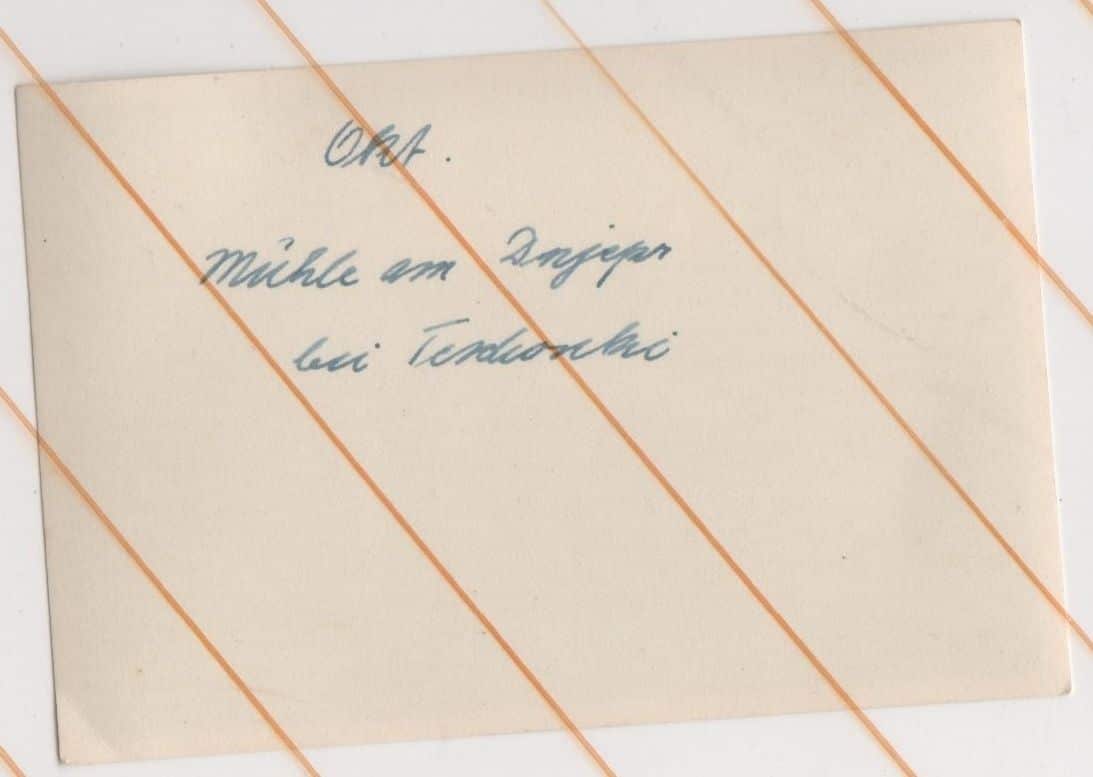 Okt.
Mühle am Dnjepr
bei